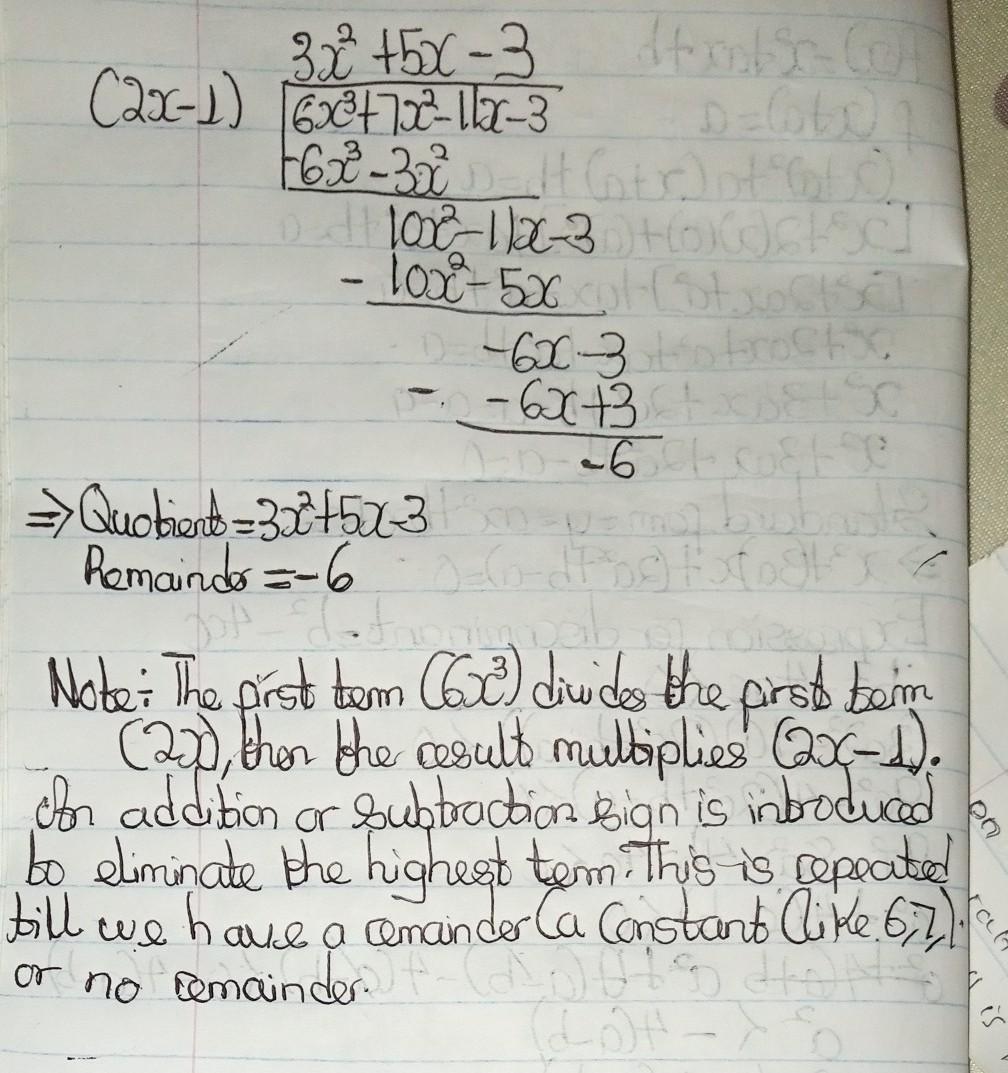 3x² + 5x - 3
(2x-1) 6x³ + 7x² - 11x - 3
-6x³ - 3x²
10x² - 11x - 3
- 10x² - 5x
-6x - 3
- -6x + 3
-6
⇒ Quotient = 3x² + 5x - 3
Remainder = -6
Note: The first term (6x³) divides the first term
(2x), then the result multiplies (2x-1).
An addition or subtraction sign is introduced
to eliminate the highest term. This is repeated
till we have a remainder (a constant (like 6,7,).
or no remainder.